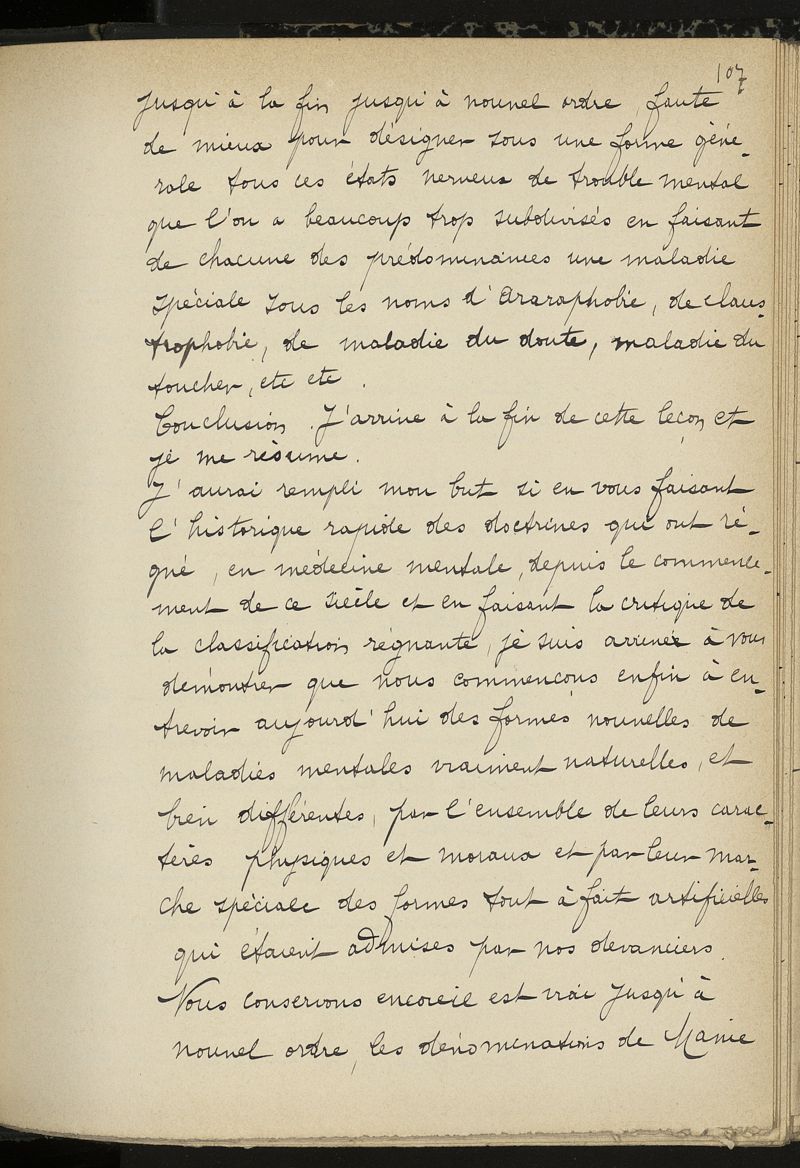 107
jusqu'à la fin jusqu'à nouvel ordre, faute
de mieux pour désigner sous une forme géné-
rale tous ces états nerveux de trouble mental
que l'on a beaucoup trop subdivisés en faisant
de chacune des prédominances une maladie
spéciale sous les noms d'Araraphobie, de claus-
trophobie, de maladie du doute, maladie du
toucher, etc etc.
Conclusion. J'arrive à la fin de cette leçon et
je me résume.
J'aurai rempli mon but si en vous faisant
l'historique rapide des doctrines qui ont ré-
gné, en médecine mentale, depuis le commence-
ment de ce siècle et en faisant la critique de
la classification régnante, je suis arrivé à vous
démontrer que nous commencons enfin à en-
trevoir aujourd'hui des formes nouvelles de
maladies mentales vraiment naturelles, et
bien différentes, par l'ensemble de leurs carac-
tères physiques et moraux et par leur mar-
che spéciale des formes tout à fait artificielles
qui étaient admises par nos devanciers.
Nous conservons encore il est vrai jusqu'à
nouvel ordre, les dénominations de Manie